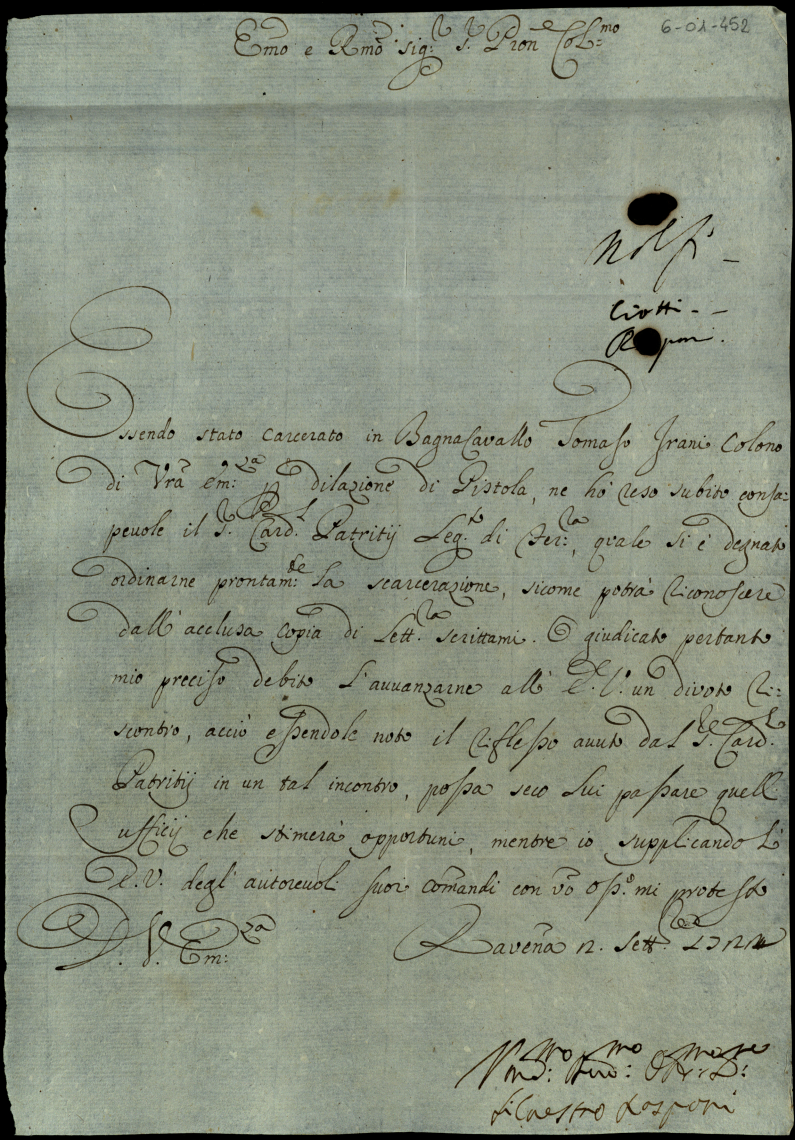 6-01-452
Emo e Rmo sig:r s.r Pron e Col:mo
Nolfi
Ciotti - -
Rasponi.
Essendo stato carcerato in Bagnacavallo Tomaso Irani Colono
di Vra Em:za p dilazione di Pistola, ne hò reso subito consa=
peuole il S.r Card.l Patritij Leg.to di Fer:ra, quale si è degnato
ordinarne prontam:te la scarcerazione, sicome potrà riconoscere
dall' acclusa copia di Lett:ra scrittami. O giudicato pertanto
mio preciso debito l'auuanzarne all' E.V. un divoto ri=
scontro, acciò essendole noto il riflesso auuto dal S.r Card.l
Patritij in un tal incontro, possa seco lui passare quell
ufficij che stimerà opportuni, mentre io supplicando l'
E.V. degl' autoreuoli suoi comandi con vo oss.o mi protesto
D. V. Em:za
Ravena 12. Sett.
Siluestro Rasponi